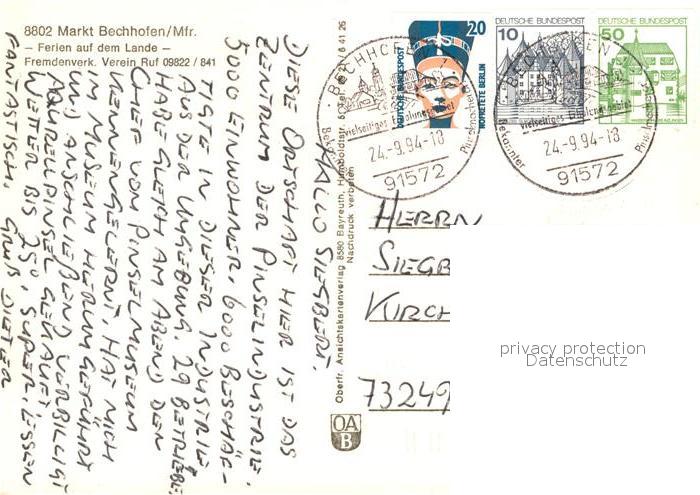 8802 Markt Bechhofen/Mfr.
– Ferien auf dem Lande –
Fremdenverk. Verein Ruf 09822 / 841
HALLO SIEGBERT.
DIESE ORTSCHAFT HIER IST DAS
ZENTRUM DER PINSELINDUSTRIE.
5000 EINWOHNER, 6000 BESCHÄF-
TIGTE IN DIESER INDUSTRIE
AUS DER UMGEBUNG. 29 BETRIEBE.
HABE GLEICH AM ABEND DEN
CHEF VOM PINSELMUSEUM
KENNENGELERNT, HAT MICH
IM MUSEUM HERUM GEFÜHRT
UND ANSCHLIEßEND VERBILLIGT
AQUARELLPINSEL GEKAUFT.
WETTER BIS 25°, SUPER, ESSEN
FANTASTISCH. GRUß DIETER
Oberfr. Ansichtskartenverlag 8580 Bayreuth, Humboldtstr.
Nachdruck verboten
OA
B
20
DEUTSCHE BUNDESPOST
NOFRETETE BERLIN
DEUTSCHE BUNDESPOST
10
DEUTSCHE BUNDESPOST
50
BECHHOFEN
vielseitiges Erholungsgebiet
24.-9.94-18
91572
BECHHOFEN
Bekannter
vielseitiges Erholungsgebiet
Pinselmacher
24.-9.94-18
91572
HERRN
SIEGB
KIRCH
73249
privacy protection
Datenschutz